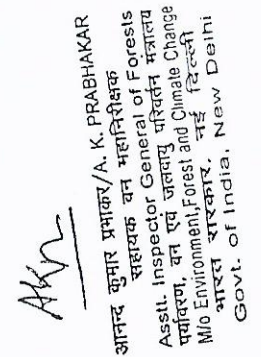 आनन्द कुमार प्रभाकर/A. K. PRABHAKAR
सहायक वन महानिरीक्षक
Asstt. Inspector General of Forests
पर्यावरण, वन एवं जलवायु परिवर्तन मंत्रालय
M/o Environment, Forest and Climate Change
भारत सरकार, नई दिल्ली
Govt. of India, New Delhi